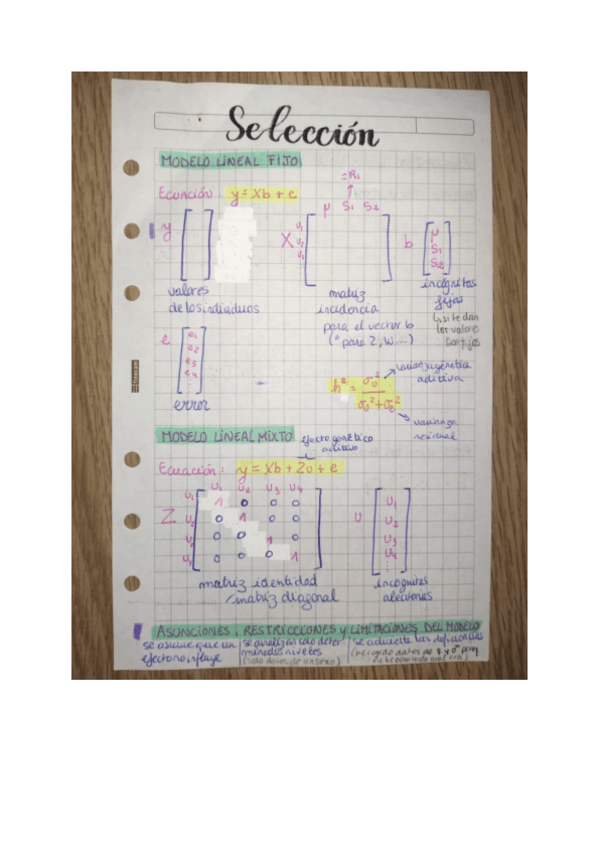 Selección
MODELO LINEAL FIJO
Ecuación: y = Xb + e
= R1
↑
μ S1 S2
y [ ]
X [ ]
u1
u2
u3
b [ μ
S1
S2 ]
valores
de los individuos
matriz
incidencia
para el vector b
(* para Z, W...)
incógnitas
fijas
↳ si te dan
los valores
son fijos
e [ e1
e2
e3
e4
⋮ ]
error
h² = σu² / σu² + σe²
varianza genética
aditiva
varianza
residual
MODELO LINEAL MIXTO
efecto genético
aditivo
Ecuación: y = Xb + Zu + e
u1 u2 u3 u4
Z
u1 1 0 0 0
u2 0 1 0 0
u3 0 0 1 0
u4 0 0 0 1
u [ u1
u2
u3
u4
⋮ ]
matriz identidad
/matriz diagonal
incógnitas
aleatorias
ASUNCIONES, RESTRICCIONES y LIMITACIONES DEL MODELO
se asume que un
efecto no influye
se analizan solo deter
minados niveles
(solo datos de un sexo)
se advierte las deficiencias
(recogido datos de ♀ y ♂ pero